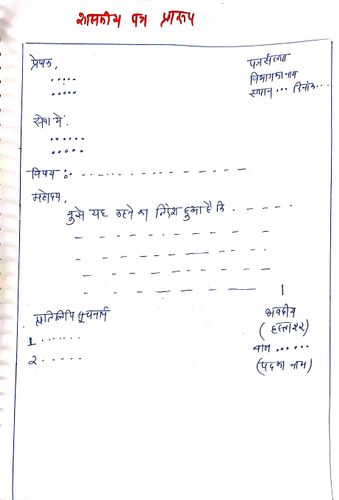 शासकीय पत्र प्रारूप
प्रेषक,
.....
.....
पत्रसंख्या
विभाग का नाम
स्थान ... दिनांक...
सेवा में.
......
.....
विषय :- - - - - - - - - - -
महोदय,
मुझे यह कहने का निर्देश हुआ है कि - - - -
- - - - - - - -
- - - - - - - -
- - - - - - - -
- - - - - - - - ।
प्रतिलिपि सूचनार्थ
1 ......
2 .....
भवदीय
(हस्ताक्षर)
नाम ......
(पद का नाम)